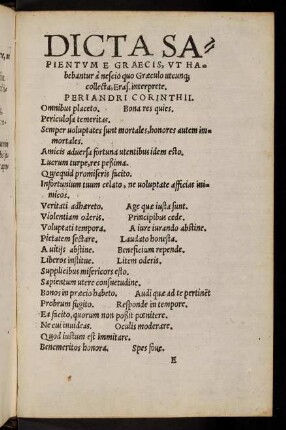 DICTA SA=
PIENTVM E GRAECIS, VT HA=
bebantur à nescio quo Græculo utcunq;
collecta, Eras. interprete.
PERIANDRI CORINTHII.
Omnibus placeto. Bona res quies.
Periculosa temeritas.
Semper uoluptates sunt mortales, honores autem im=
mortales.
Amicis aduersa fortuna utentibus idem esto.
Lucrum turpe, res peßima.
Quicquid promiseris facito.
Infortunium tuum celato, ne uoluptate afficias ini=
micos.
Veritati adhæreto. Age quæ iusta sunt.
Violentiam oderis. Principibus cede.
Voluptati tempora. A iure iurando abstine.
Pietatem sectare. Laudato honesta.
A uitijs abstine. Beneficium repende.
Liberos institue. Litem oderis.
Supplicibus misericors esto.
Sapientum utere consuetudine.
Bonos in præcio habeto. Audi quæ ad te pertinẽt
Probrum fugito. Responde in tempore.
Ea facito, quorum non poßit pœnitere.
Ne cui inuideas. Oculis moderare.
Quod iustum est immitare.
Benemeritos honora. Spes foue.
E